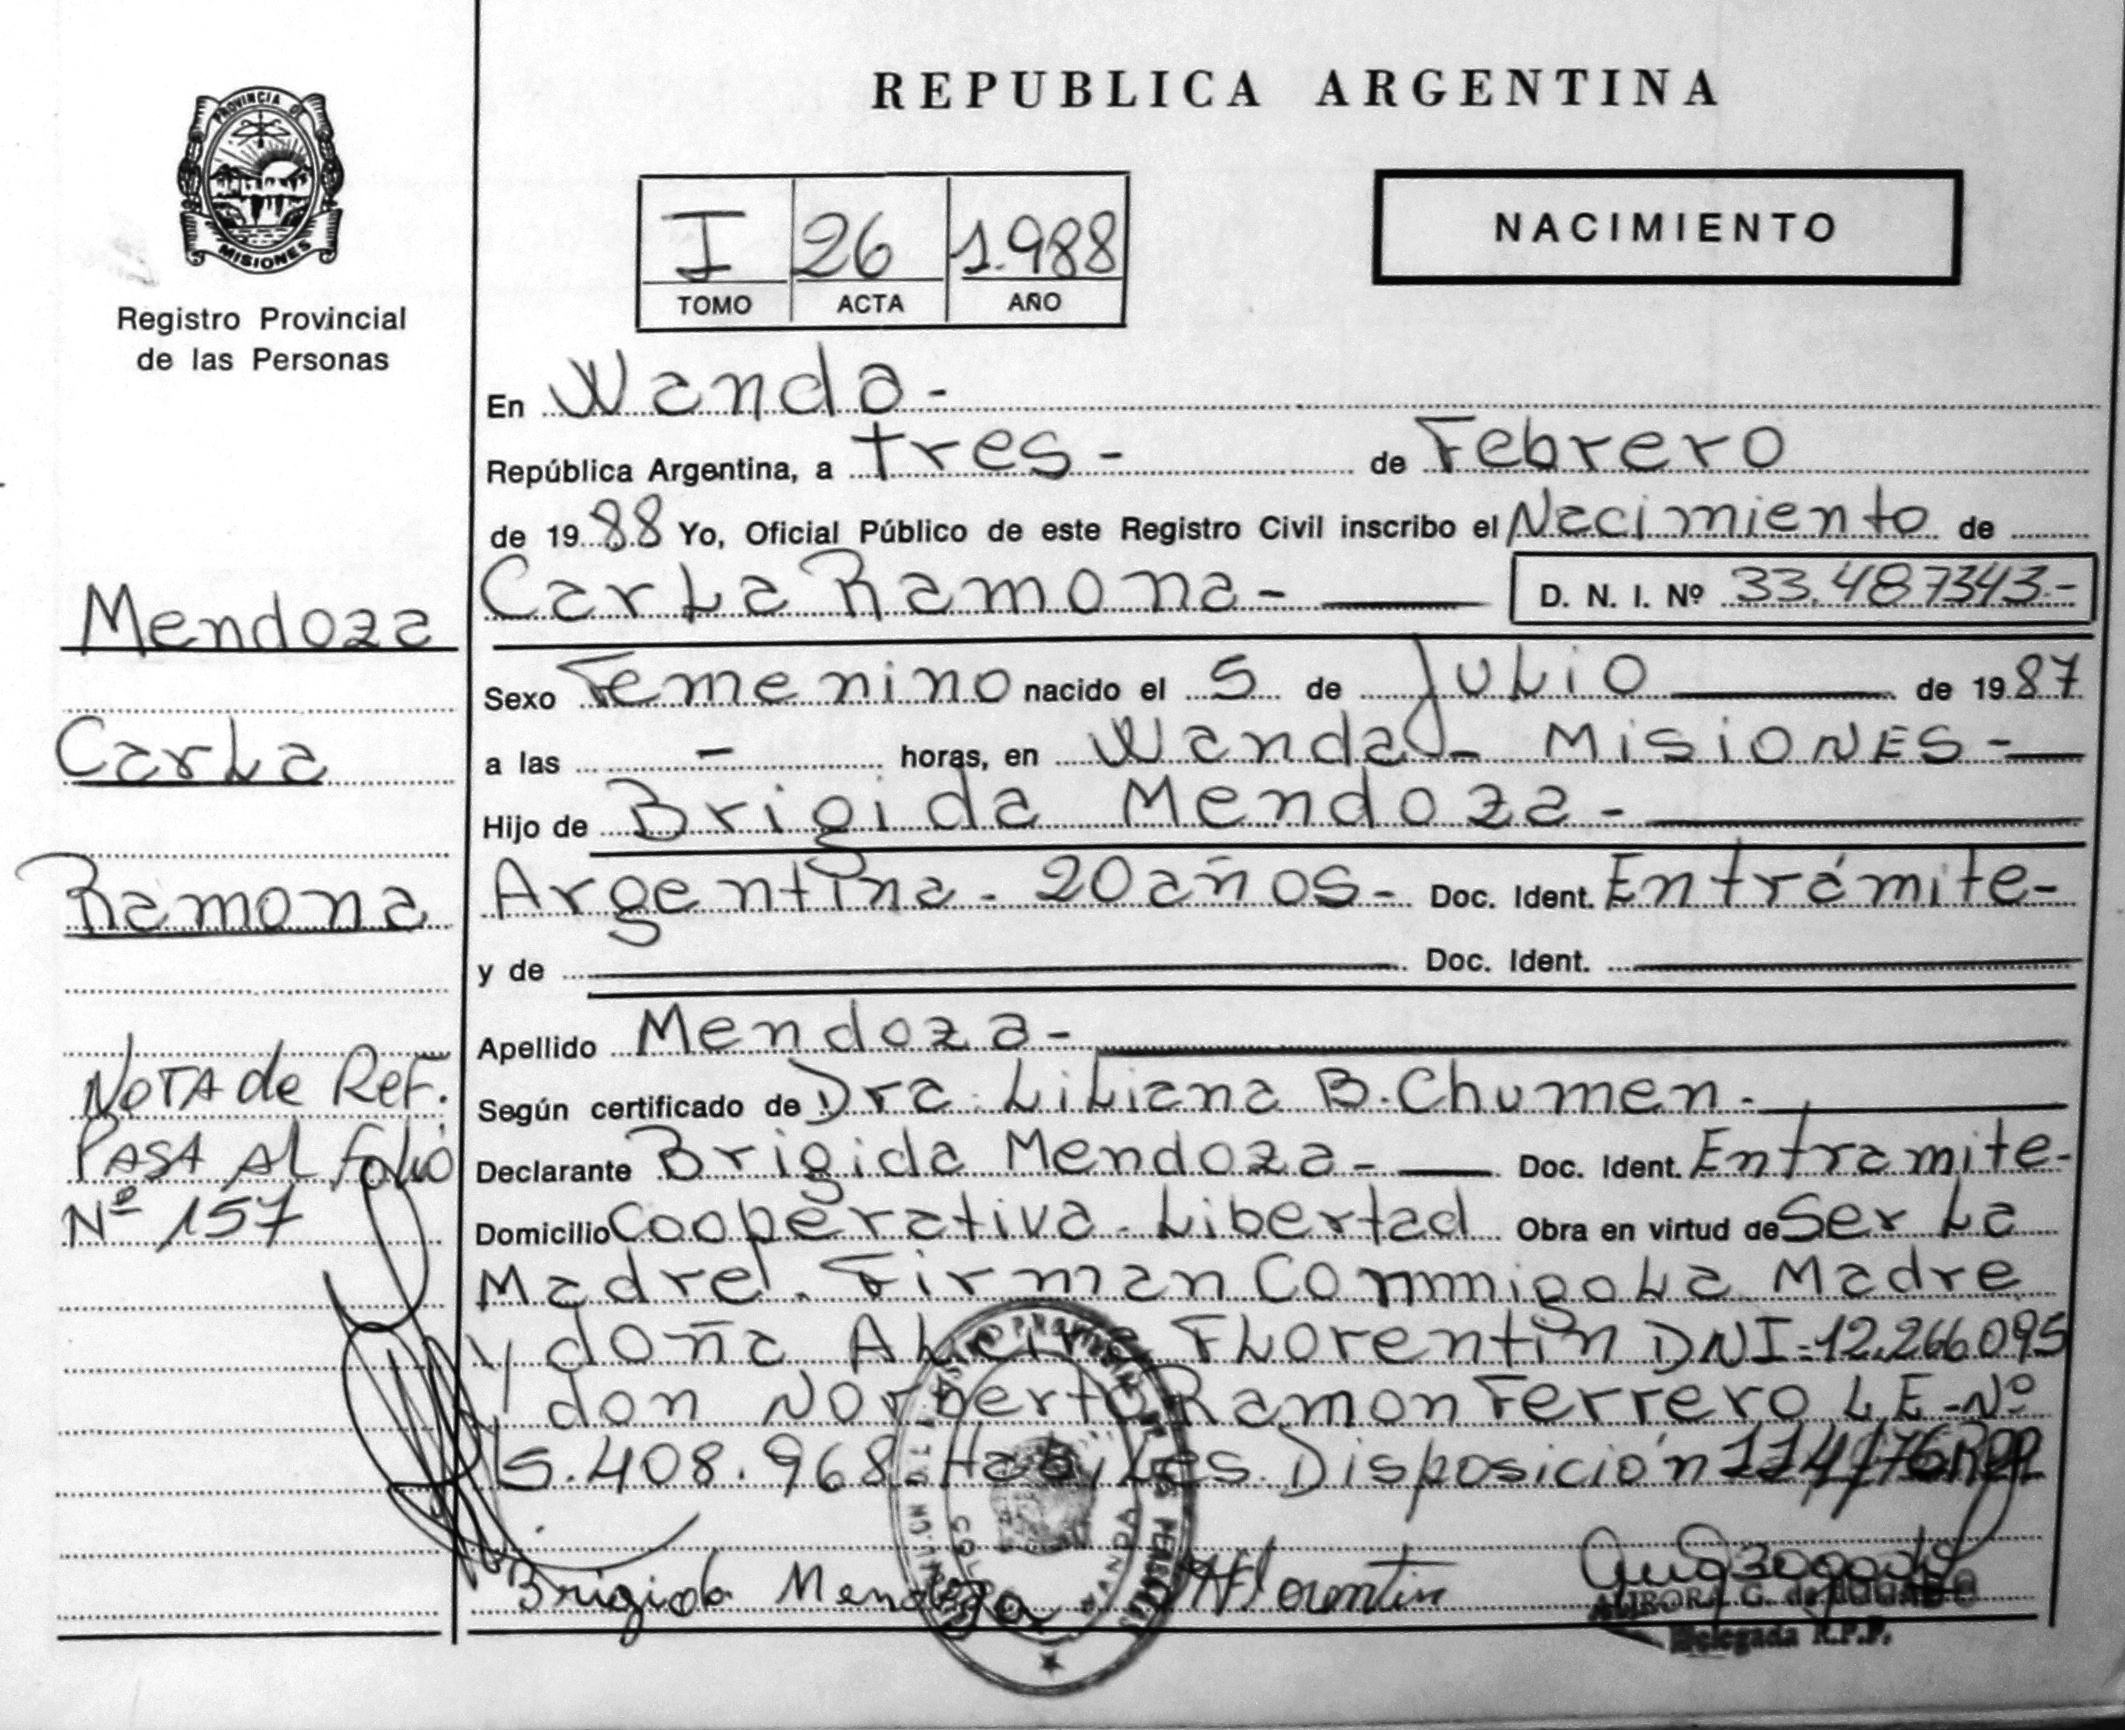 REPUBLICA ARGENTINA
PROVINCIA DE
MISIONES
Registro Provincial
de las Personas
I 26 1.988
TOMO ACTA AÑO
NACIMIENTO
En Wanda-
República Argentina, a tres- de Febrero
de 1988 Yo, Oficial Público de este Registro Civil inscribo el Nacimiento de
Carla Ramona- D. N. I. Nº 33.487343.-
Sexo Femenino nacido el 5 de Julio de 1987
a las - horas, en Wanda - MISIONES-
Hijo de Brigida Mendoza-
Argentina - 20 años- Doc. Ident. Entrámite-
y de Doc. Ident.
Apellido Mendoza-
Según certificado de Dra. Liliana B. Chumen.
Declarante Brigida Mendoza- Doc. Ident. Entramite-
Domicilio Cooperativa - Libertad Obra en virtud de Ser La
Madre. Firman Commigo La Madre
y doña Florentín DNI-12.266.095
y don Norberto Ramon Ferrero L.E-Nº
5.408.968. Habiles. Disposición 114/76
Brigida Mendoza
AFlorentin
AURORA G. de BOGADO
Delegada R.P.P.
Mendoza
Carla
Ramona
NOTA de REF.
PASA AL folio
Nº 157